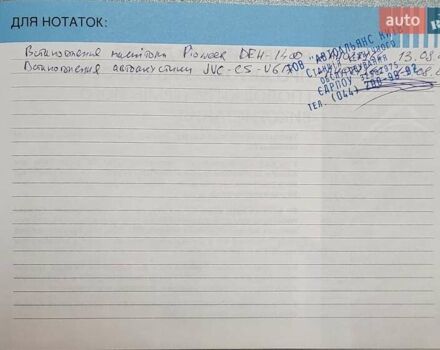 auto
ДЛЯ НОТАТОК:
Встановлення магнітоли Pioneer DEH-1400 13.08
Встановлення автоакустики JVC-CS-V6 08.0
ТОВ "АВТОАЛЬЯНС КИЇВ"
СТАНЦІЯ ОБСЛУГОВУВАННЯ
ЄДРПОУ
ТЕЛ. (044)